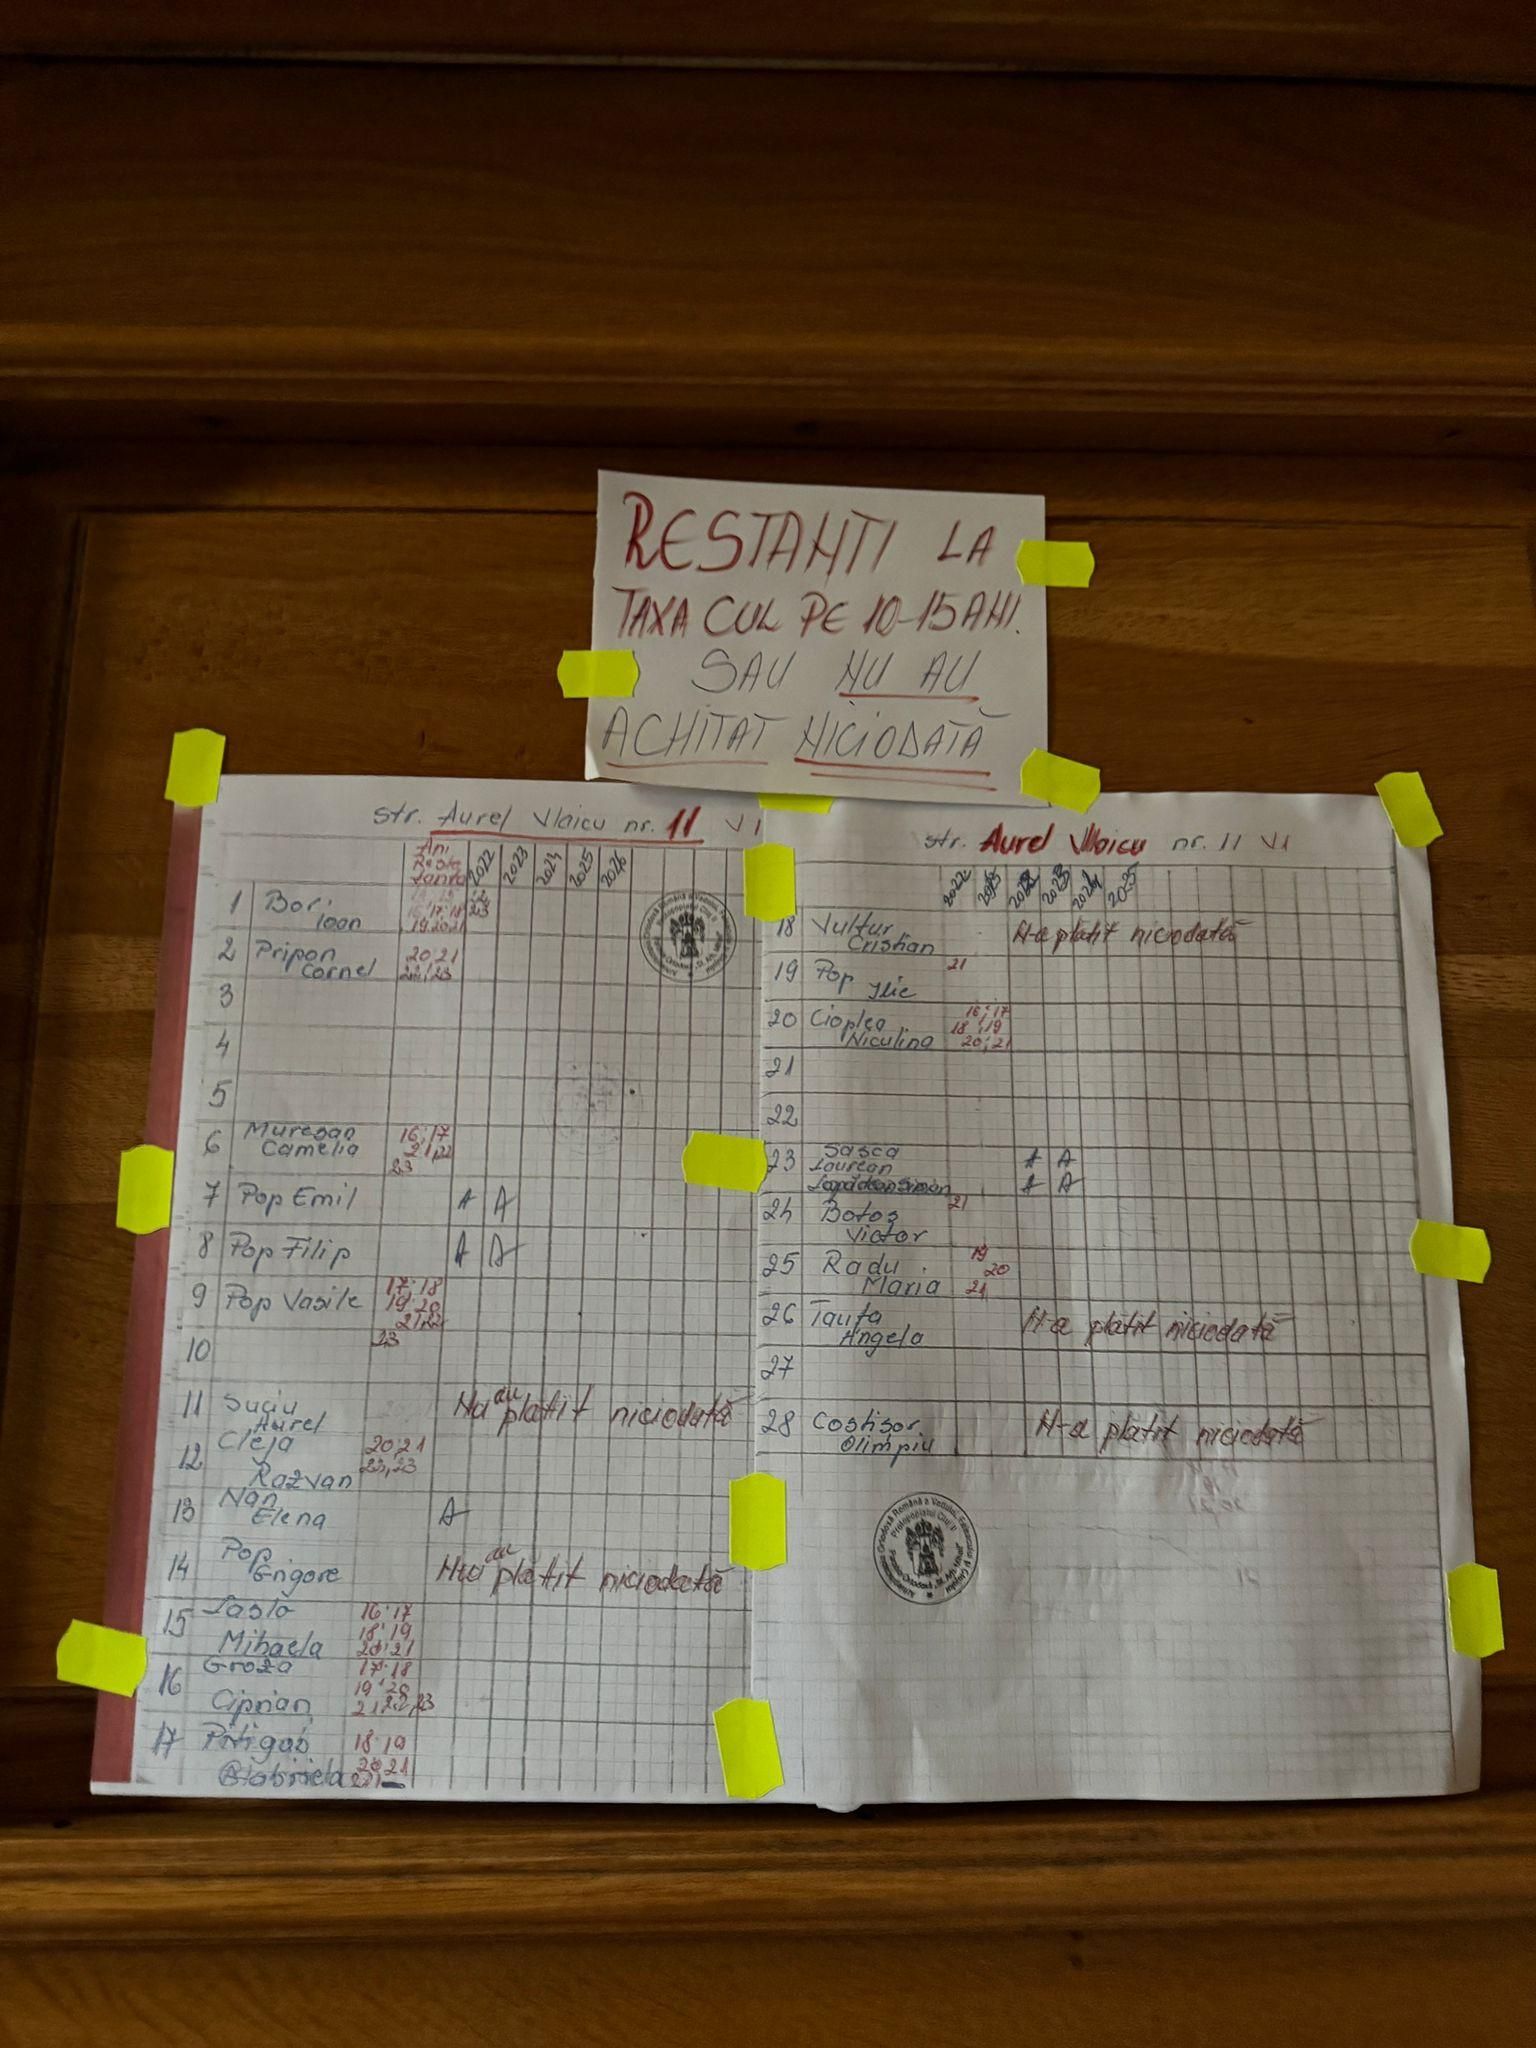 RESTANTI LA
TAXA CUL PE 10-15 ANI.
SAU NU AU
ACHITAT NICIODATĂ
str. Aurel Vlaicu nr. 11 V1
Ani
Resta
2022 2023 2024 2025 2026
1 Bori Ioan 16,17,18 19,20,21 22, 23
2 Pripon Cornel 20,21 22,23
3
4
5
6 Muresan Camelia 16,17 21,22 23
7 Pop Emil A A
8 Pop Filip A A
9 Pop Vasile 17.18 19.20 21.22 23
10
11 Suciu Aurel Nu au platit niciodată
12 Cleja Razvan 20,21 22,23
13 Nan Elena A
14 Pop Grigore Nu au platit niciodată
15 Laslo Mihaela 16.17 18.19 20.21
16 Groza Ciprian 17.18 19.20 21,22,23
17 18.19 20.21
str. Aurel Vlaicu nr. 11 V1
2022 2023 2024 2025
18 Vultur Cristian N-a platit niciodată
19 Pop Ilie 21
20 Cioplea Niculina 16.17 18,19 20,21
21
22
23 Sasca Laurean A A
A A
24 Botos Victor 21
25 Radu Maria 19 20 21
26 Tauta Angela N-a platit niciodată
27
28 Costisor Olimpiu N-a platit niciodată